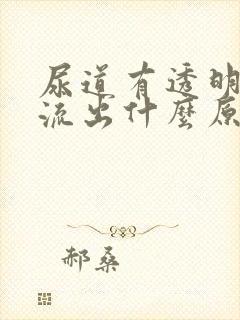 尿道有透明
流出什麼原
郝桑